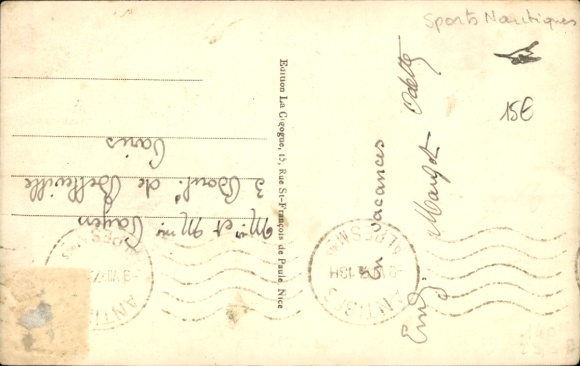 Sports Nautiques
15€
Edition La Cigogne, 15, Rue St-François de Paule, Nice
en vacances
Margot Odette
Mr et Mme Payen
3 Boul.d de Belleville
Paris
ANTIBES
ALPES Mmes
ANTIBES
ALPES Mmes